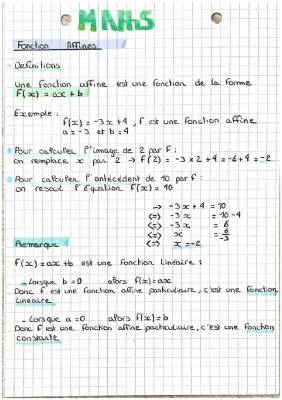 MATHS
Fonction Affines
Definitions
Une fonction affine est une fonction de la forme
f(x) = ax + b
Exemple :
f(x) = -3x + 4, f est une fonction affine
a = -3 et b = 4
Pour calculer l'image de 2 par f :
on remplace x par 2 → f(2) = -3 × 2 + 4 = -6 + 4 = -2
Pour calculer l'antécédent de 10 par f :
on resoud l'Equation f(x) = 10
→ -3x + 4 = 10
(=) -3x = 10 - 4
(=) -3x = 6
(=) x = 6/-3
(=) x = -2
Remarque
f(x) = ax + b est une fonction linéaire :
- Lorsque b = 0 alors f(x) = ax
Donc f est une fonction affine particulière, c'est une fonction
lineaire
- Lorsque a = 0 alors f(x) = b
Donc f est une fonction affine particulière, c'est une fonction
constante